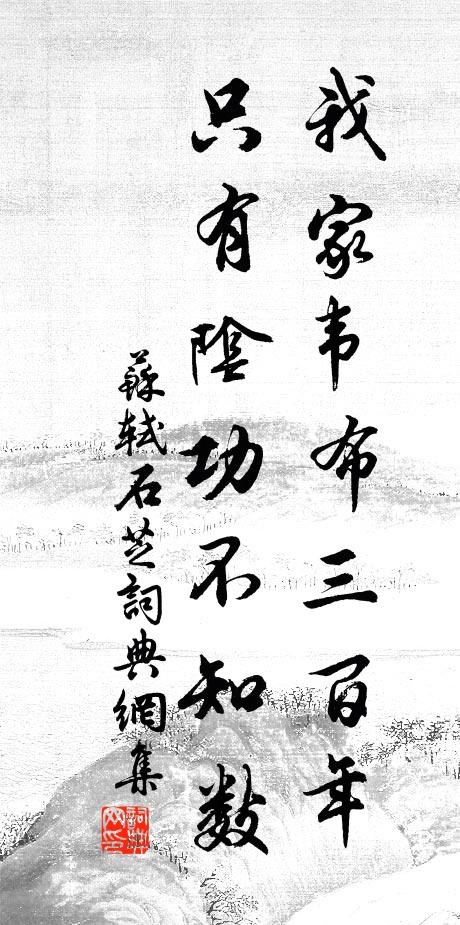 我家韦布三百年
只有陰功不知数
蘇軾石芝詞典網集
詞典网印